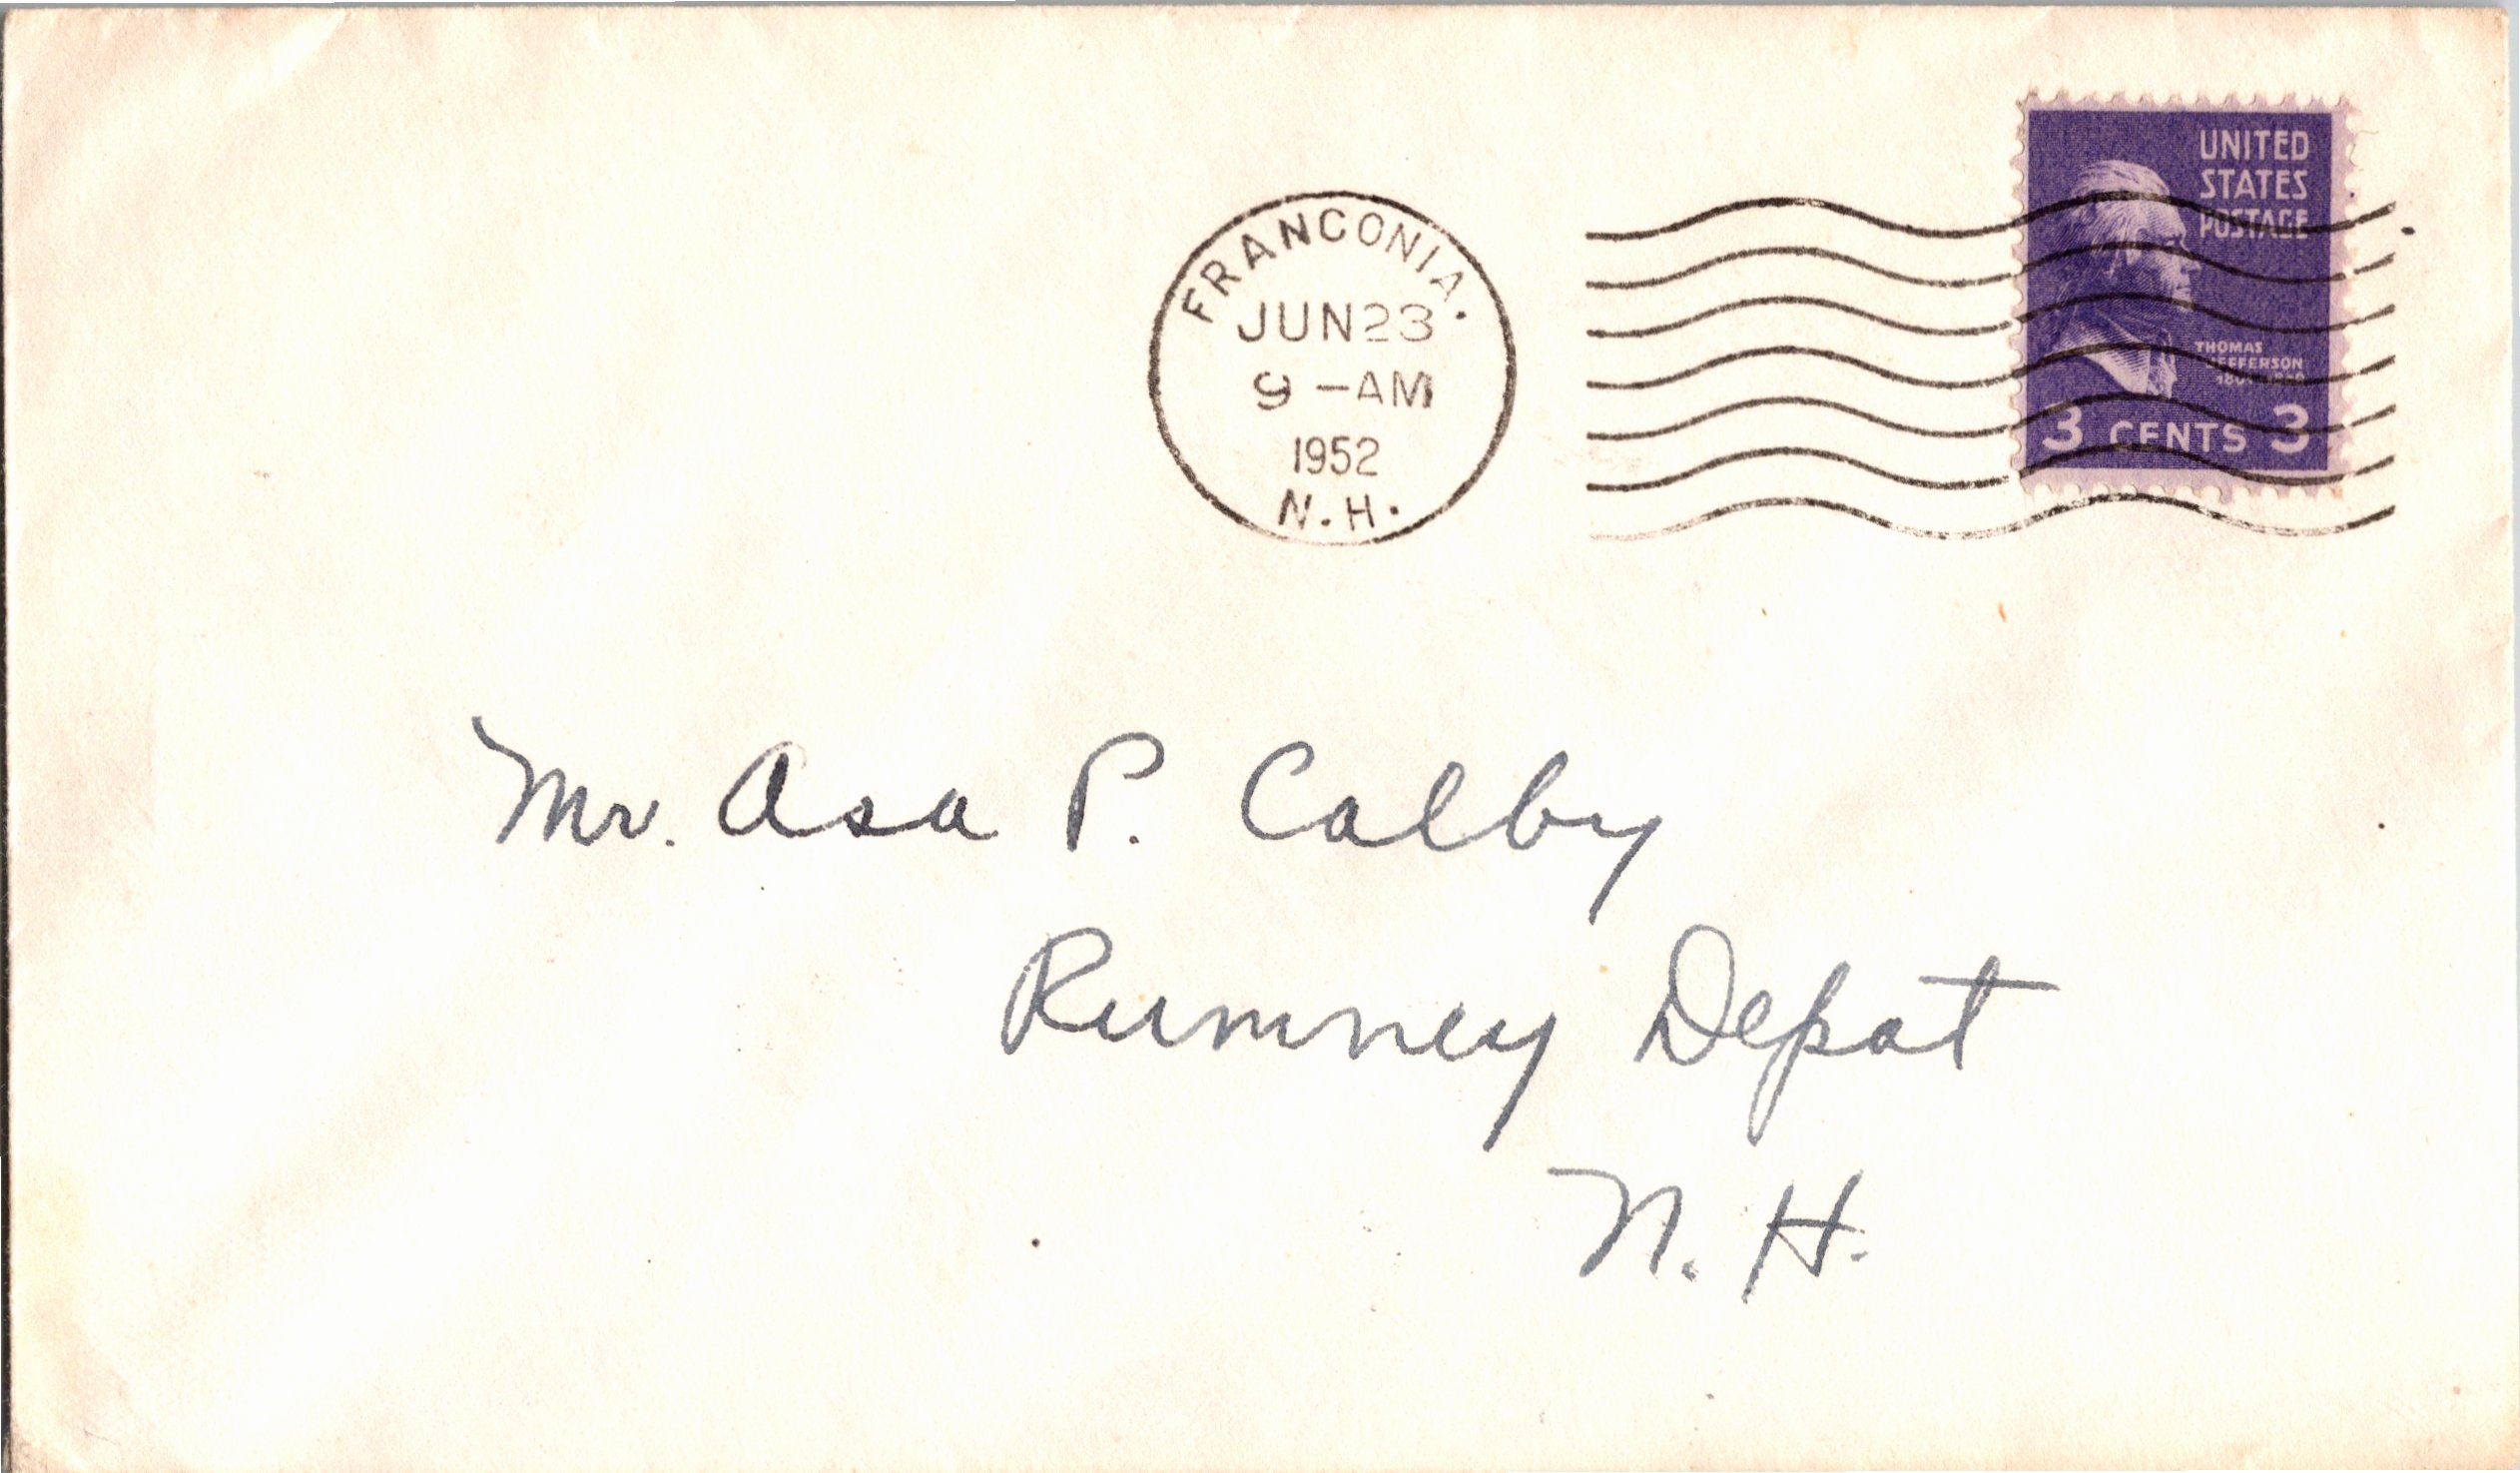 FRANCONIA.
JUN 23
9 -AM
1952
N.H.
UNITED
STATES
POSTAGE
THOMAS
JEFFERSON
3 CENTS 3
Mr. Asa P. Colby
Rumney Depot
N. H.